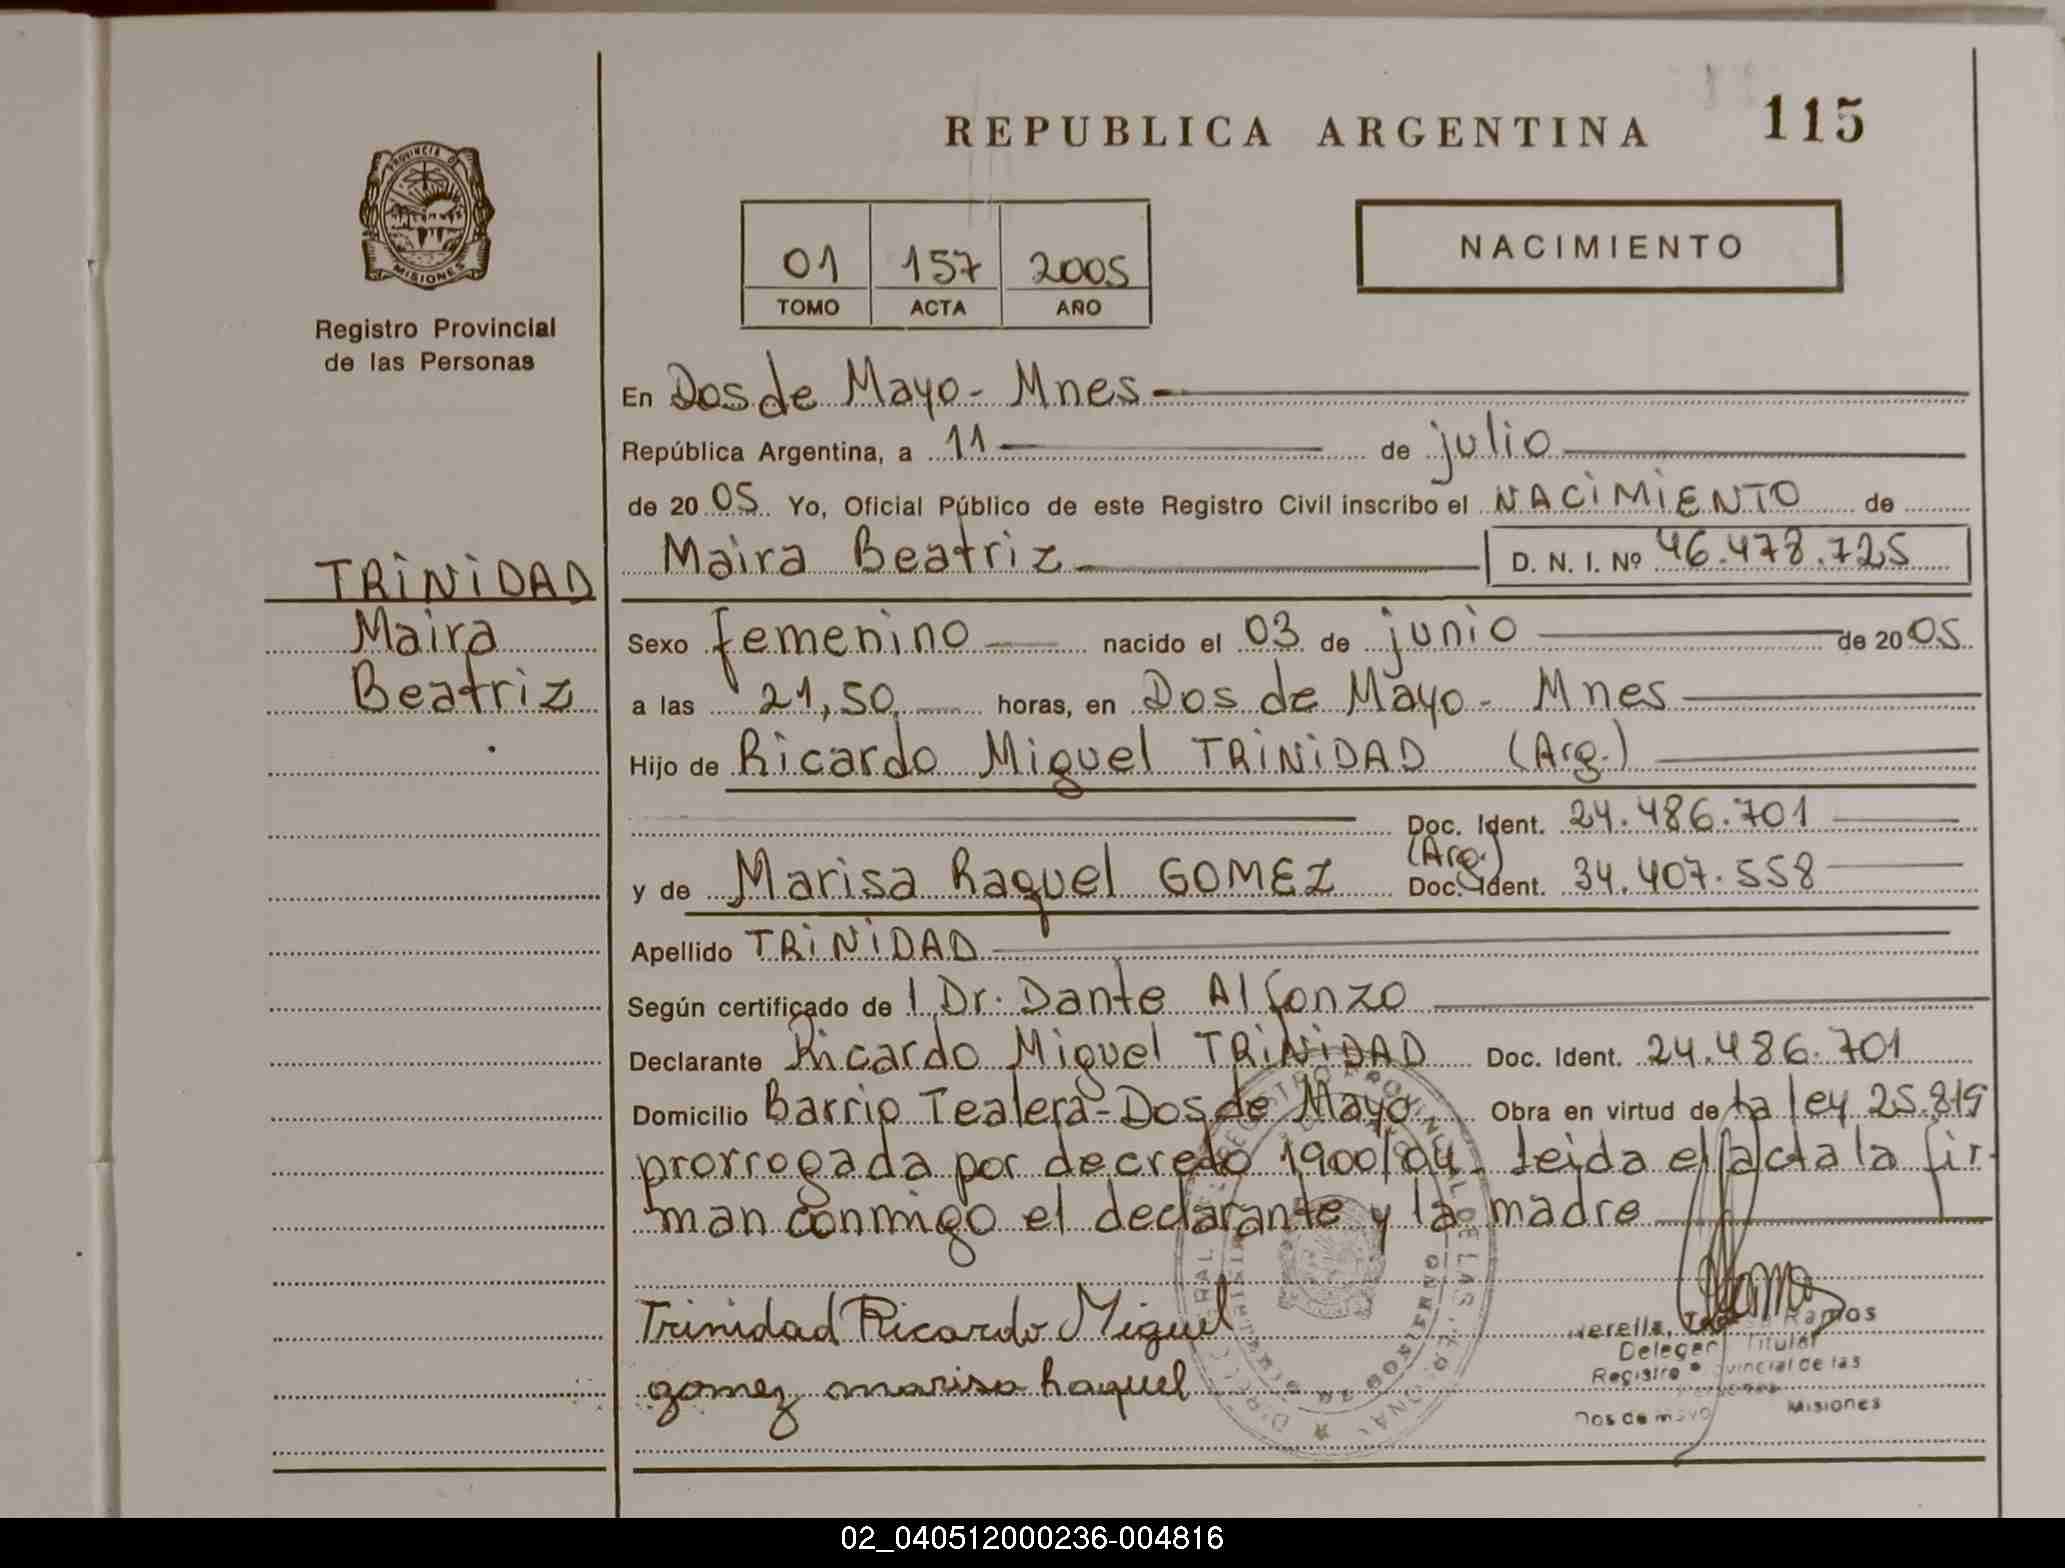 REPUBLICA ARGENTINA 115
PROVINCIA D
MISIONES
Registro Provincial
de las Personas
01 157 2005
TOMO ACTA AÑO
NACIMIENTO
En Dos de Mayo - Mnes
República Argentina, a 11 de julio
de 20 05 Yo, Oficial Público de este Registro Civil inscribo el NACIMIENTO de
Maira Beatriz D. N. I. Nº 46.478.725
TRINIDAD
Maira
Beatriz
Sexo femenino nacido el 03 de junio de 20 05
a las 21,50 horas, en Dos de Mayo - Mnes
Hijo de Ricardo Miguel TRINIDAD (Arg.)
Doc. Ident. 24.486.701
(Arg.)
y de Marisa Raquel GOMEZ Doc. Ident. 34.407.558
Apellido TRINIDAD
Según certificado de l Dr. Dante Alfonzo
Declarante Ricardo Miguel TRINIDAD Doc. Ident. 24.486.701
Domicilio Barrio Tealera - Dos de Mayo Obra en virtud de la ley 25.819
prorrogada por decreto 1900/04. Leida el acta la fir-
man conmigo el declarante y la madre
Trinidad Ricardo Miguel
gomez marisa haquel
Ramos
Titular
Registro vincial de las
Dos de mayo Misiones
02_040512000236-004816